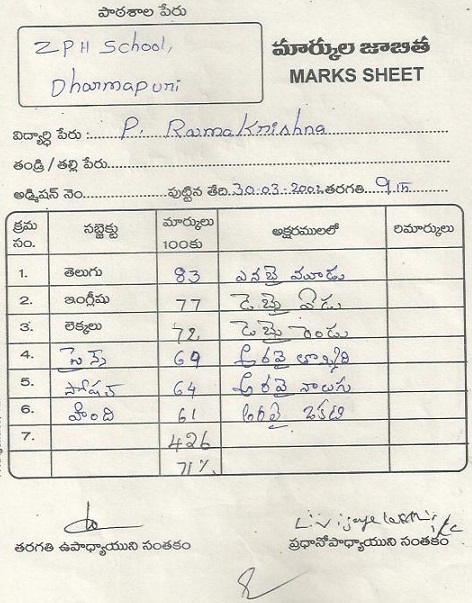 పాఠశాల పేరు
ZPH School,
Dharmapuri
మార్కుల జాబిత
MARKS SHEET
విద్యార్ధి పేరు : P. RamaKrishna
తండ్రి / తల్లి పేరు
అడ్మిషన్ నెం. పుట్టిన తేది. 30-03-2001. తరగతి. 9th
క్రమ సం. సబ్జెక్టు మార్కులు 100కు అక్షరములలో రిమార్కులు
1. తెలుగు 83 ఎనభై మూడు
2. ఇంగ్లీషు 77 డెబ్బై ఏడు
3. లెక్కలు 72 డెబ్బై రెండు
4. సైన్స్ 69 అరవై తొమ్మిది
5. సోషల్ 64 అరవై నాలుగు
6. హింది 61 అరవై ఒకటి
7. 426
71%.
తరగతి ఉపాధ్యాయుని సంతకం ప్రధానోపాధ్యాయుని సంతకం